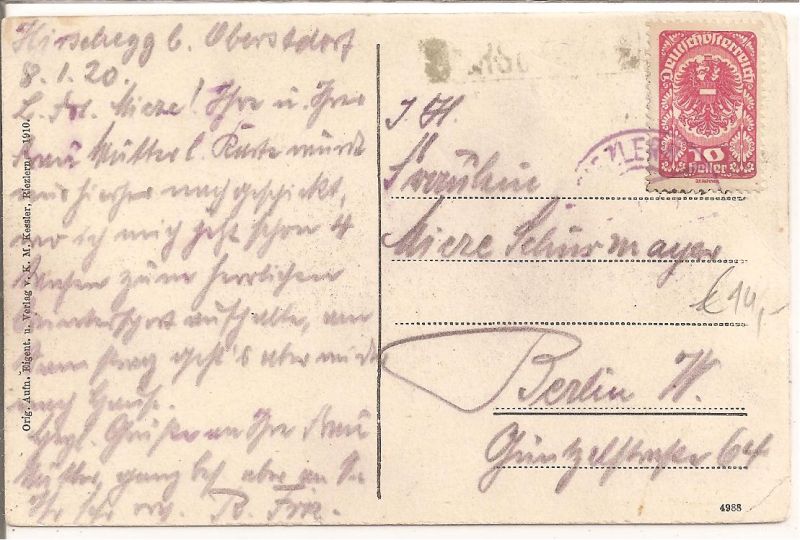 Hirschegg b. Oberstdorf
8.1.20.
L. Frl. Mieze! Ihre u. Ihrer
Frau Mutter l. Karte wurde
mir hierher nachgeschickt,
wo ich mich jetzt schon 4
Wochen zum herrlichen
Wintersport aufhalte, am
geht's aber wieder
nach Hause.
Hrzl. Grüße an Ihre Frau
Mutter, ganz bes. aber an Sie
Ihr sehr erg. R.
Orig. Aufn. Eigent. u. Verlag v. K. M. Kessler, Riezlern 1910.
Deutschösterreich
10
Heller
ZLER
Fräulein
Mieze Schürmayer
€ 14,-
Berlin W.
Güntzelstraße 64
4988